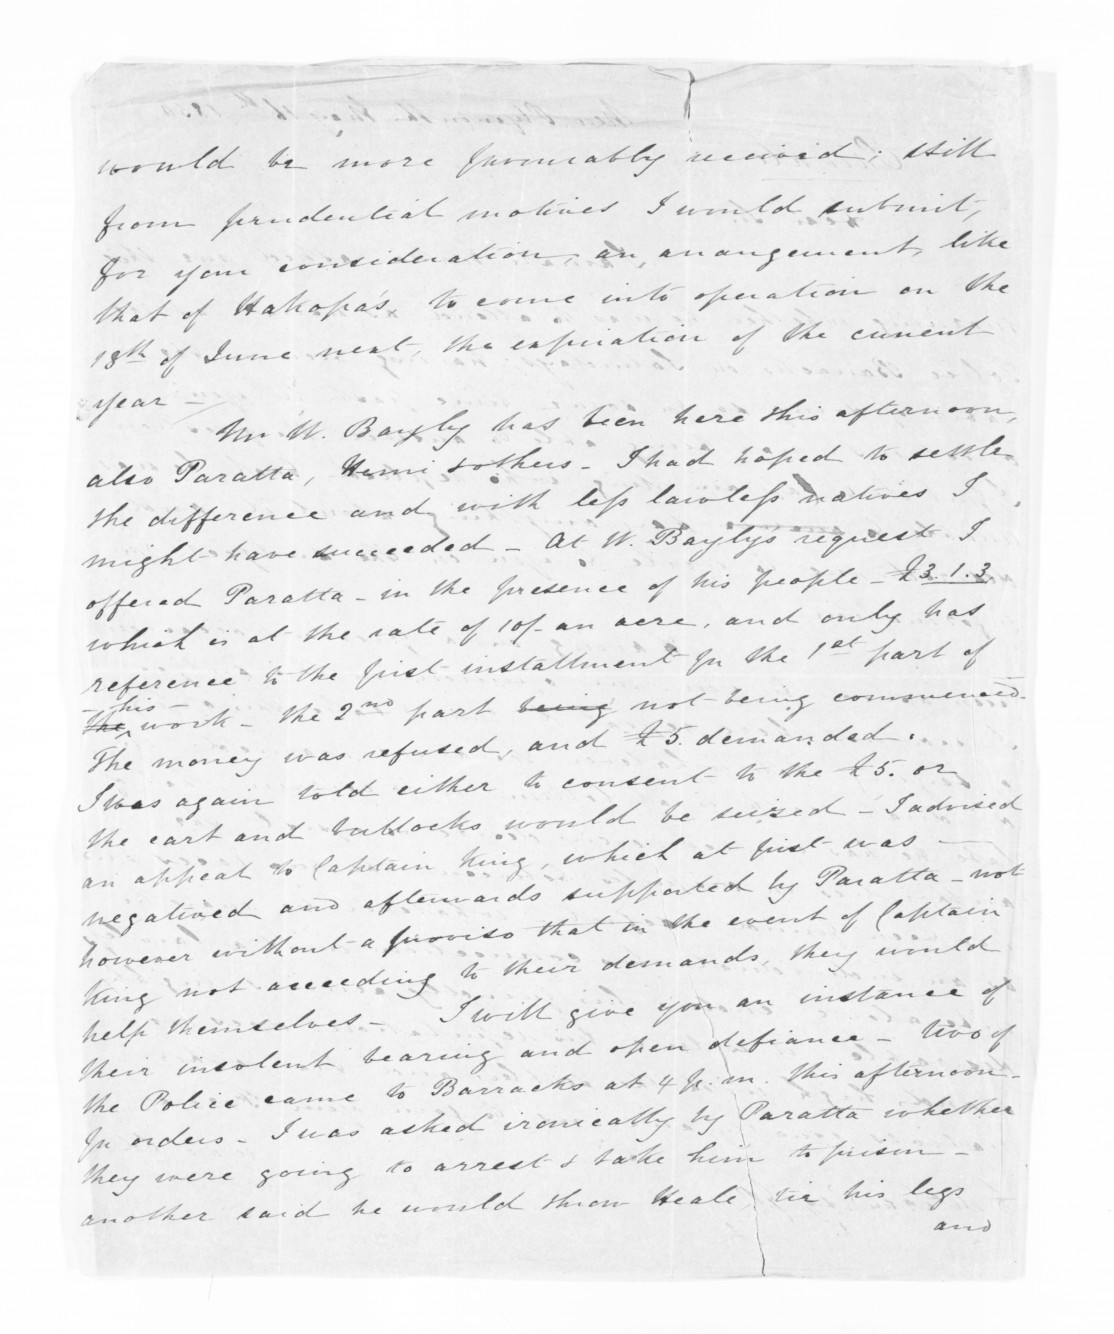 would be more favourably received; still
from prudential motives I would submit,
for your consideration, an arrangement, like
that of Hakopa's to come into operation on the
18th of June next, the expiration of the current
year -
Mr W. Bayly has been here this afternoon,
also Paratta, Hemi & others - I had hoped to settle
the difference and with less lawless natives I
might have succeeded - At W. Bayly's request I
offered Paratta - in the presence of his people - £3.1.3
which is at the rate of 10/- an acre, and only has
reference to the first installment for the 1st part of
the his work - the 2nd part being not being commenced -
The money was refused, and £5. demanded.
I was again told either to consent to the £5. or
the cart and bullocks would be seized - I advised
an appeal to Captain King, which at first was -
negatived and afterwards supported by Paratta - not
however without a proviso that in the event of Captain
King not acceeding to their demands, they would
help themselves - I will give you an instance of
their insolent bearing and open defiance - Two of
the Police came to Barracks at 4 p.m. this afternoon -
for orders - I was asked ironically by Paratta whether
they were going to arrest & take him to prison -
another said he would throw Heale, tie his legs
and